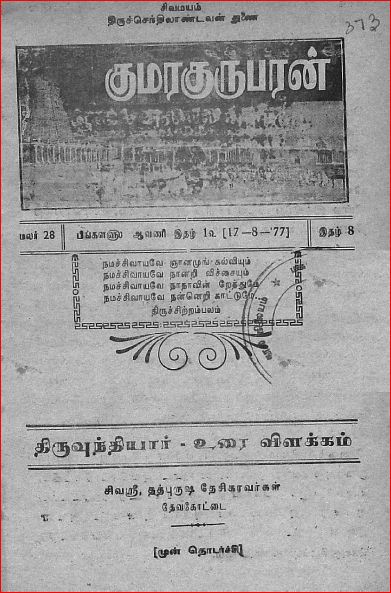 சிவமயம்
திருச்செந்திலாண்டவன் துணை
373
குமரகுருபரன்
மலர் 28
பிங்களளு ஆவணி இதழ் 1௳ [17-8-'77]
இதழ் 8
நமச்சிவாயவே ஞானமுங் கல்வியும்
நமச்சிவாயவே நானறி விச்சையும்
நமச்சிவாயவே நாநவின் றேத்துமே
நமச்சிவாயவே நன்னெறி காட்டுமே.
திருச்சிற்றம்பலம்
திருவுந்தியார் - உரை விளக்கம்
சிவஸ்ரீ, தத்புருஷ தேசிகரவர்கள்
தேவகோட்டை
[முன் தொடர்ச்சி]